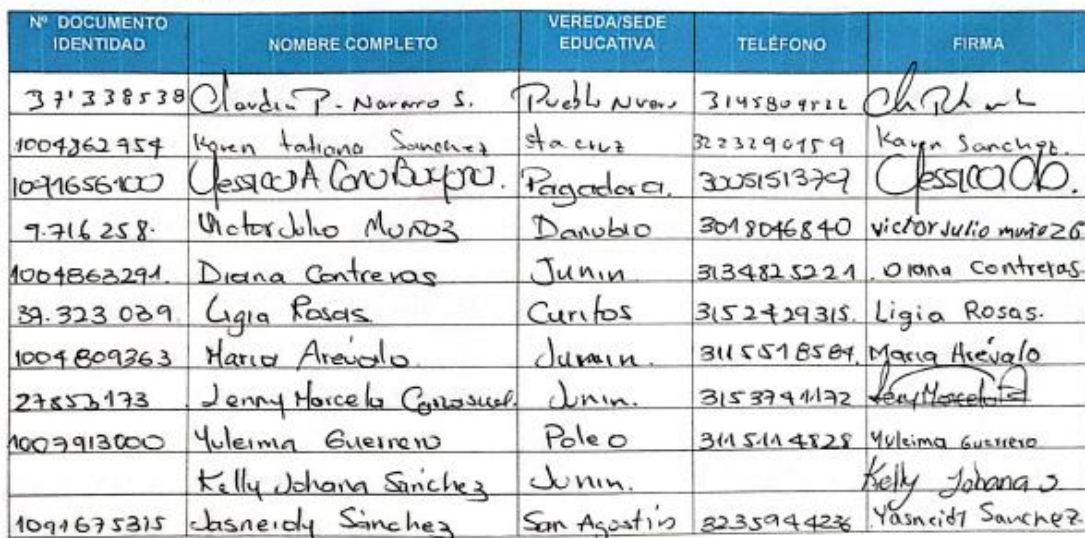 Nº DOCUMENTO IDENTIDAD NOMBRE COMPLETO VEREDA/SEDE EDUCATIVA TELÉFONO FIRMA
37'338538 Claudia P. Navarro S. Pueblo Nuevo
1004862954 Karen tatiana Sanchez sta cruz 3223290159 Karen Sanchez.
1091656100 Jessica A Pagadora. Jessica
9.716258. Victor Julio MUÑOZ Danubio 3018046840 victor Julio muñoz G
1004863291. Diana Contreras Junin. 3134825221 Diana Contreras
39.323 039. Ligia Rosas. Curitos 3152429315. Ligia Rosas.
1004809363 Maria Arévalo. Junin. 3115518584. Maria Arévalo
27853173 Jenny Marcela Junin. 3153794172
1007913000 Yuleima Guerrero Poleo 3115114828 Yuleima Guerrero
Kelly Johana Sánchez Junin. Kelly Johana S
1091675315 Jasneidy Sánchez San Agustín 3235944236 Yasneidy Sanchez